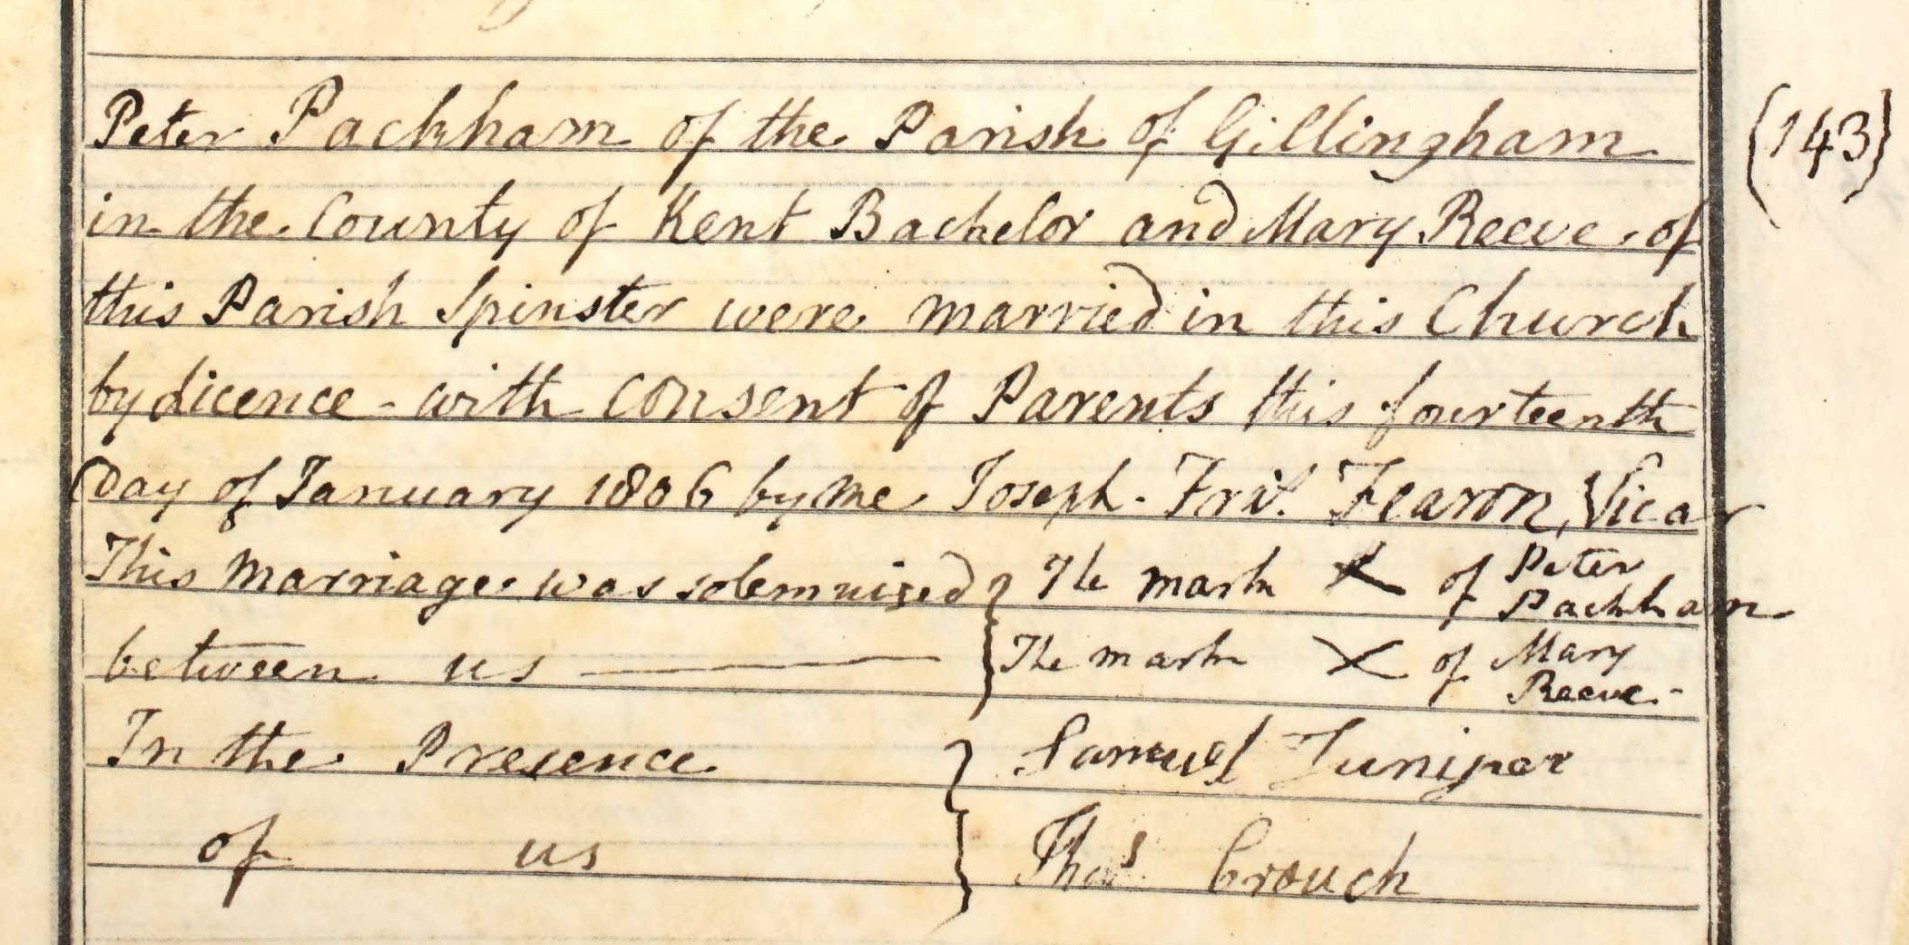 Peter Packham of the Parish of Gillingham
(143)
in the County of Kent Bachelor and Mary Reeve of
this Parish Spinster were married in this Church
by Licence - with Consent of Parents this fourteenth
Day of January 1806 by me Joseph Fearon, Vicar
This Marriage was solemnised } The mark X of Peter Packham
between us } The mark X of Mary Reeve -
In the Presence } Samuel Juniper
of us } Thos Crouch